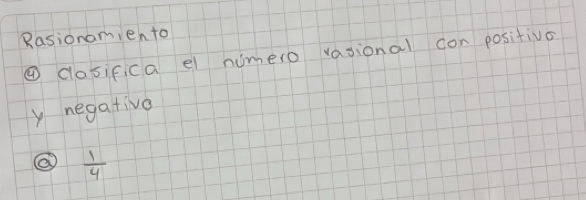 Rasionamiento
④ clasifica el número rasional con positivo
y negativo
ⓐ 1/4